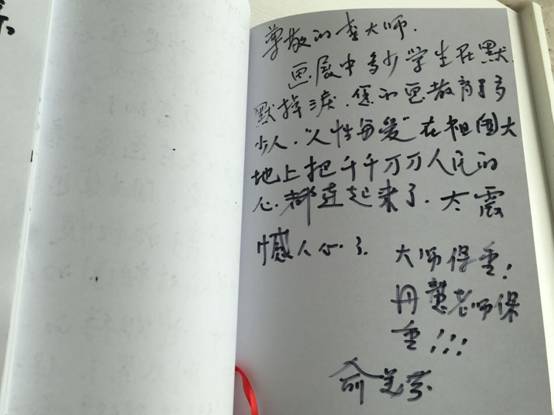 尊敬的李大师.
画展中多少学生在默
默掉泪.您的画教育了多
少人."人性与爱"在祖国大
地上把千千万万人民的
心.都连起来了.太震
憾人心了
大师保重!
丹慧老师保
重!!!
俞